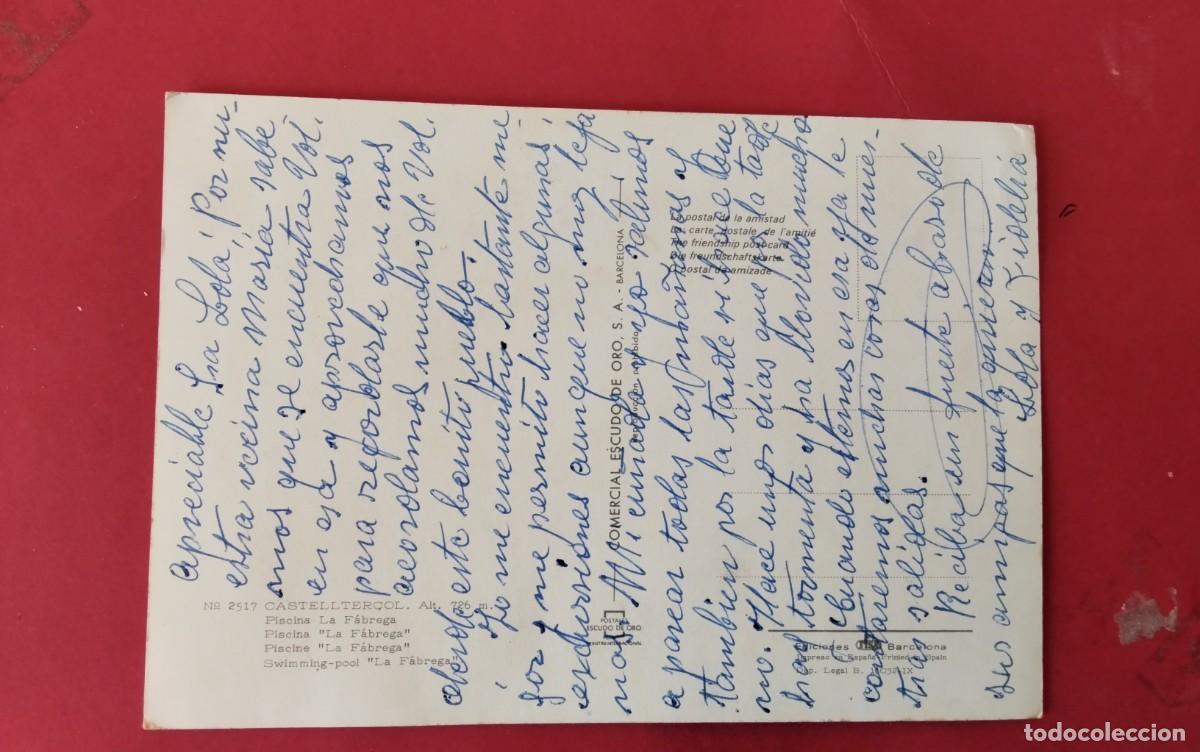 apreciable Sra Lola; Por nu-
estra vecina María sabe
mos que se encuentra Vd.
en esa y aprovechamos
para recordarle que nos
acordamos mucho de Vd.
desde este bonito pueblo.
Yo me encuentro bastante me-
jor me permito hacer algunas
escursiones aunque no muy leja
nas. Mi cuñada y yo salimos
a pasear todas las mañanas y
tambien por la tarde si hace bue
no. Hace unos dias que por la tarde
hay tormenta y ha llovido mucho
cuando estemos en esa ya le
contaremos muchas cosas de nues-
tras salidas.
Reciba un fuerte abrazo de
sus amigas que la quieren
Lola y
Nº 2517 CASTELLTERÇOL. Alt. 726 m.
Piscina La Fàbrega
Piscina "La Fàbrega"
Piscine "La Fàbrega"
Swimming-pool "La Fàbrega"
POSTALES
ESCUDO DE ORO
COMERCIAL ESCUDO DE ORO, S. A. - BARCELONA
Reproducción prohibida
La postal de la amistad
La carte postale de l'amitié
The friendship post-card
Die freundschaftskarte
O postal de amizade
Ediciones Barcelona
Impreso en España Printed in Spain
Dep. Legal B.
todocoleccion